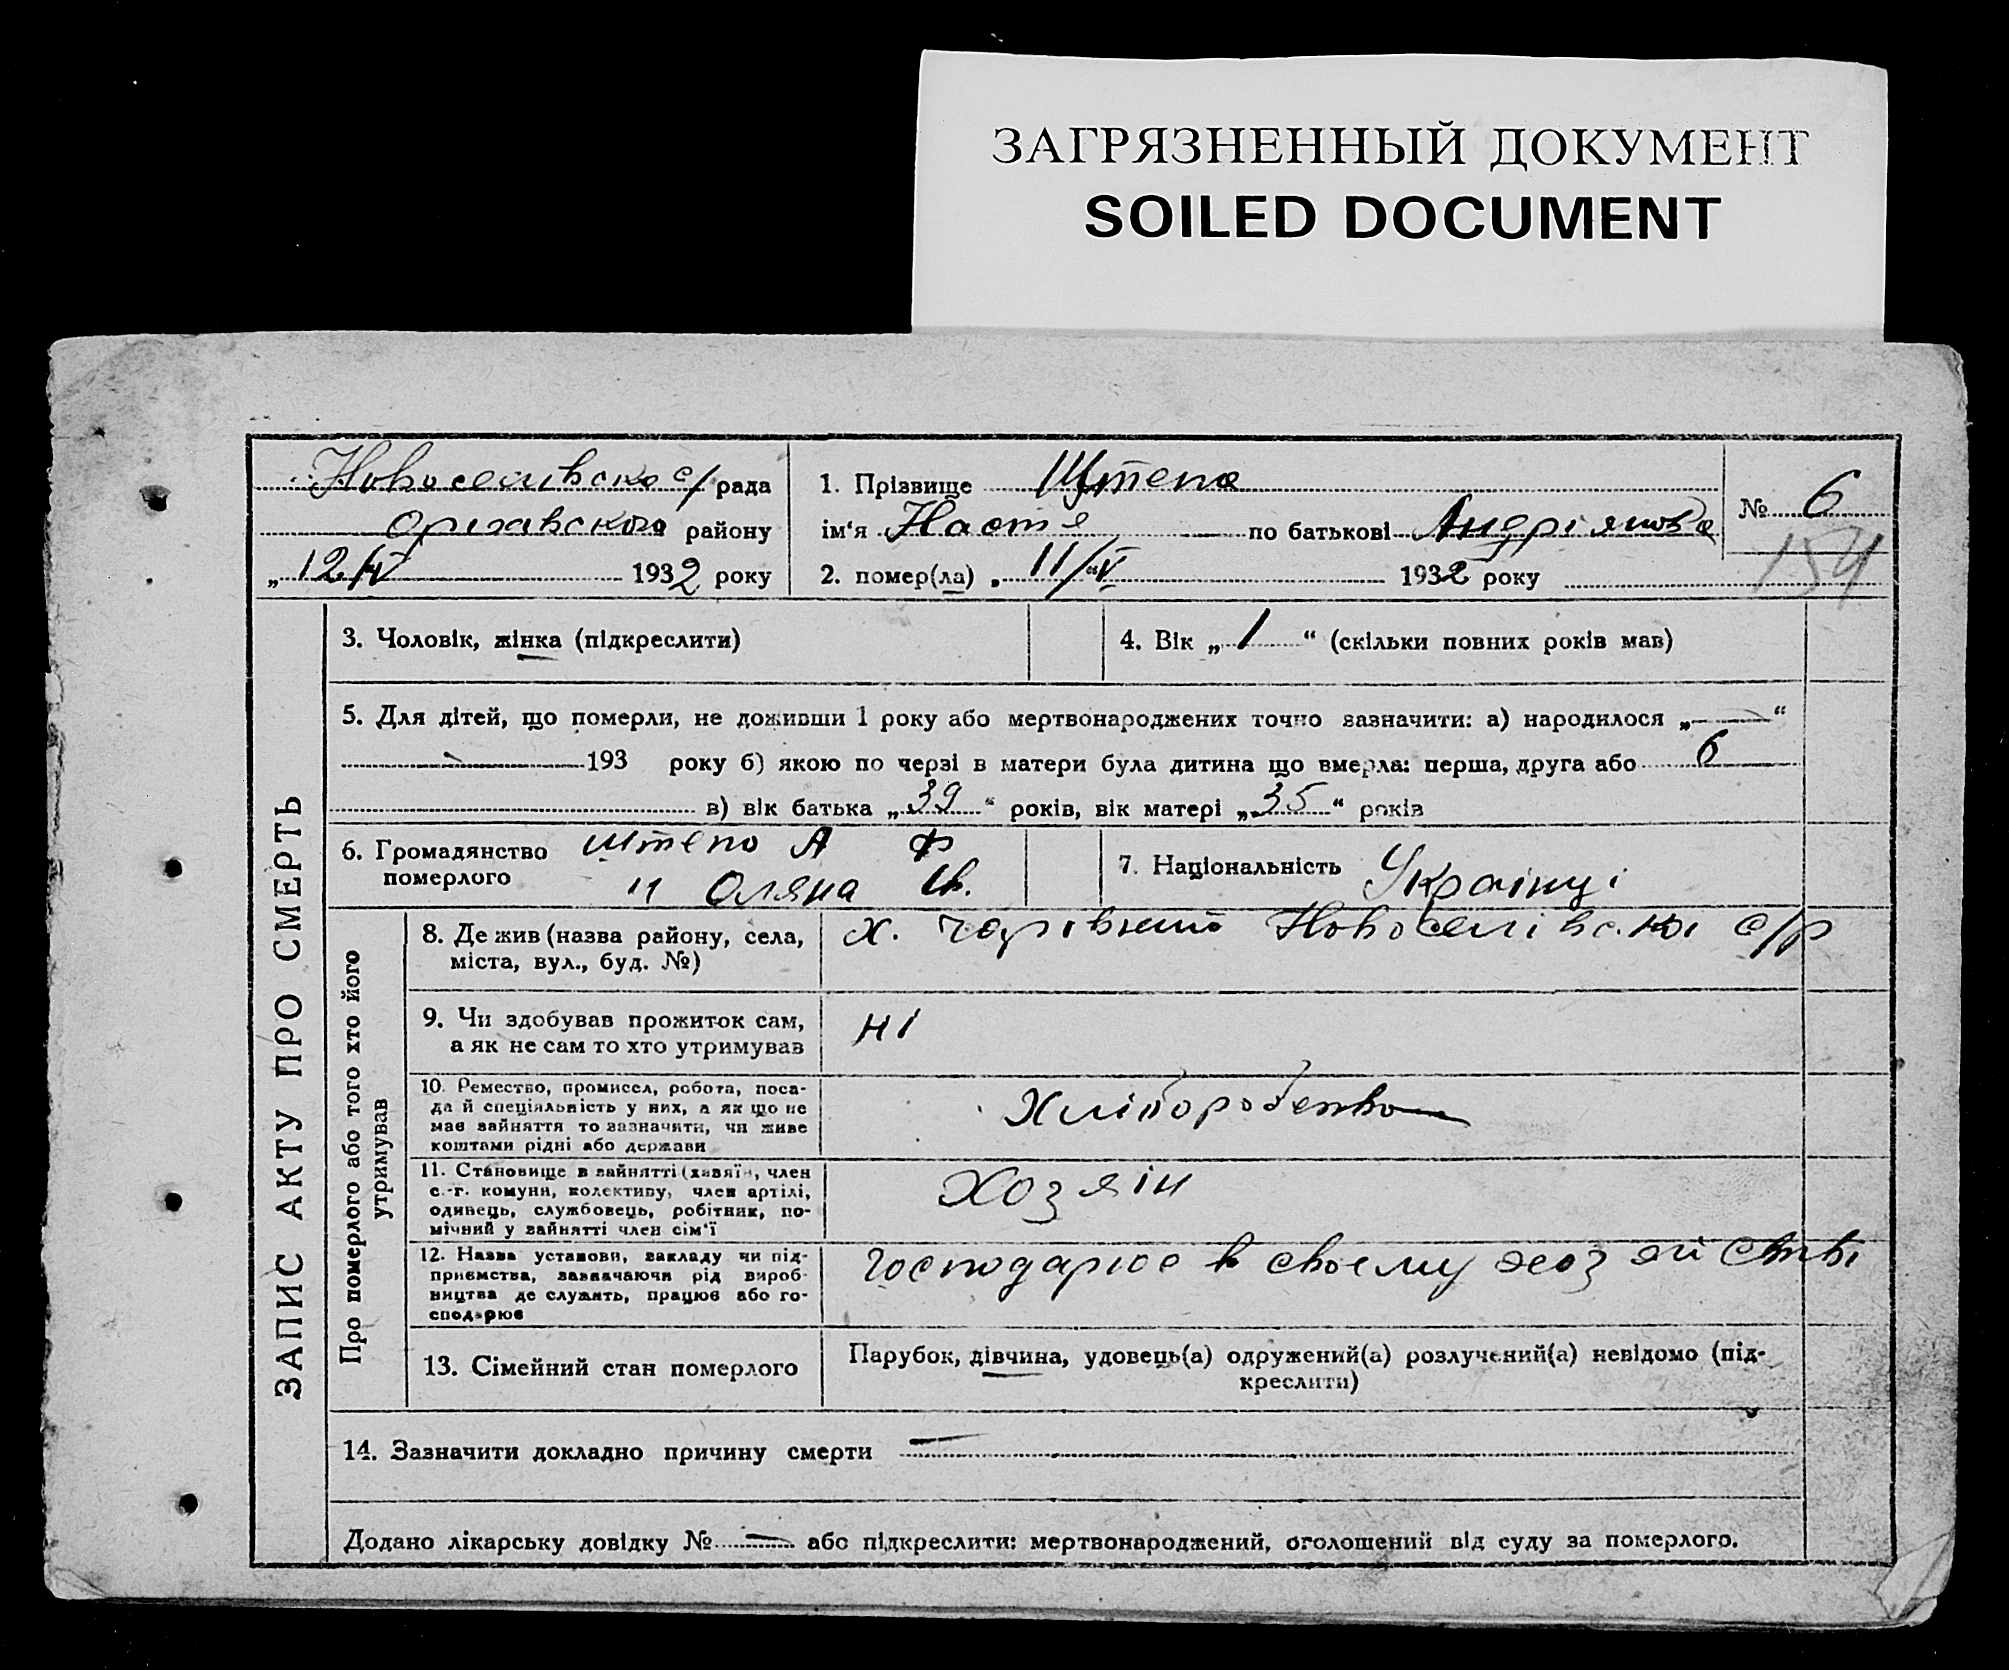 ЗАГРЯЗНЕННЫЙ ДОКУМЕНТ
SOILED DOCUMENT
Новоселивска с/рада
району
„12/VI 1932 року
1. Прізвище Штепа
ім‘я Настя по батькові Андріяновa
2. помер(ла) „11/VI“ 1932 року
№ 6
154
ЗАПИС АКТУ ПРО СМЕРТЬ
3. Чоловік, жінка (підкреслити)
4. Вік „1“ (скільки повних років мав)
5. Для дітей, що померли, не доживши 1 року або мертвонароджених точно зазначити: а) народилося „—“
193 року б) якою по черзі в матери була дитина що вмерла: перша, друга або 6
в) вік батька „39“ років, вік матері „35“ років
6. Громадянство Штепо А Ф
померлого 11 Оляна Ів.
7. Національність Українці
Про померлого або того хто його
утримував
8. Де жив (назва району, села,
міста, вул., буд. №)
х. Новоселівскоі с/р
9. Чи здобував прожиток сам,
а як не сам то хто утримував
ні
10. Ремество, промисел, робота, поса-
да й спеціяльність у них, а як що не
має зайняття то зазначити, чи живе
коштами рідні або держави
Хліборобство
11. Становище в зайнятті (хазяїн, член
с.-г. комуни, колективу, член артілі,
одинець, службовець, робітник, по-
мічний у зайнятті член сім‘ї
Хозяін
12. Назва установи, закладу чи під-
приємства, зазначаючи рід вироб-
ництва де служить, працює або го-
сподарює
господарює в своему хозяйстві
13. Сімейний стан померлого
Парубок, дівчина, удовець(а) одружений(а) розлучений(а) невідомо (під-
креслити)
14. Зазначити докладно причину смерти —
Додано лікарську довідку № — або підкреслити: мертвонароджений, оголошений від суду за померлого.